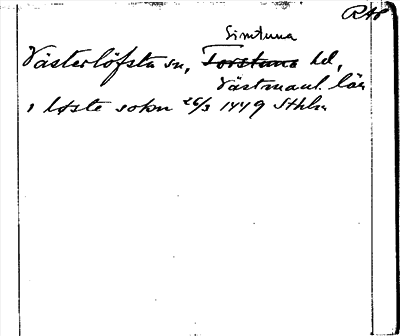 RAp
Simtuna
Västerlöfsta sn, Torstuna hd,
Västmanl. län
, løste sokn 26/3 1449 Sthlm